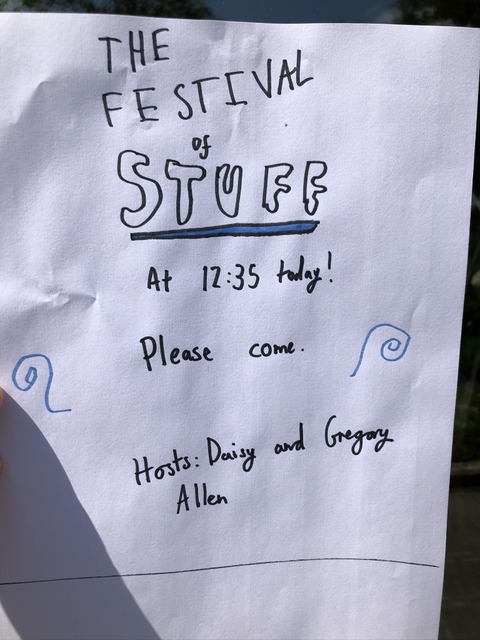 THE
FESTIVAL
of
STUFF
At 12:35 today!
Please come.
Hosts: Daisy and Gregory
Allen